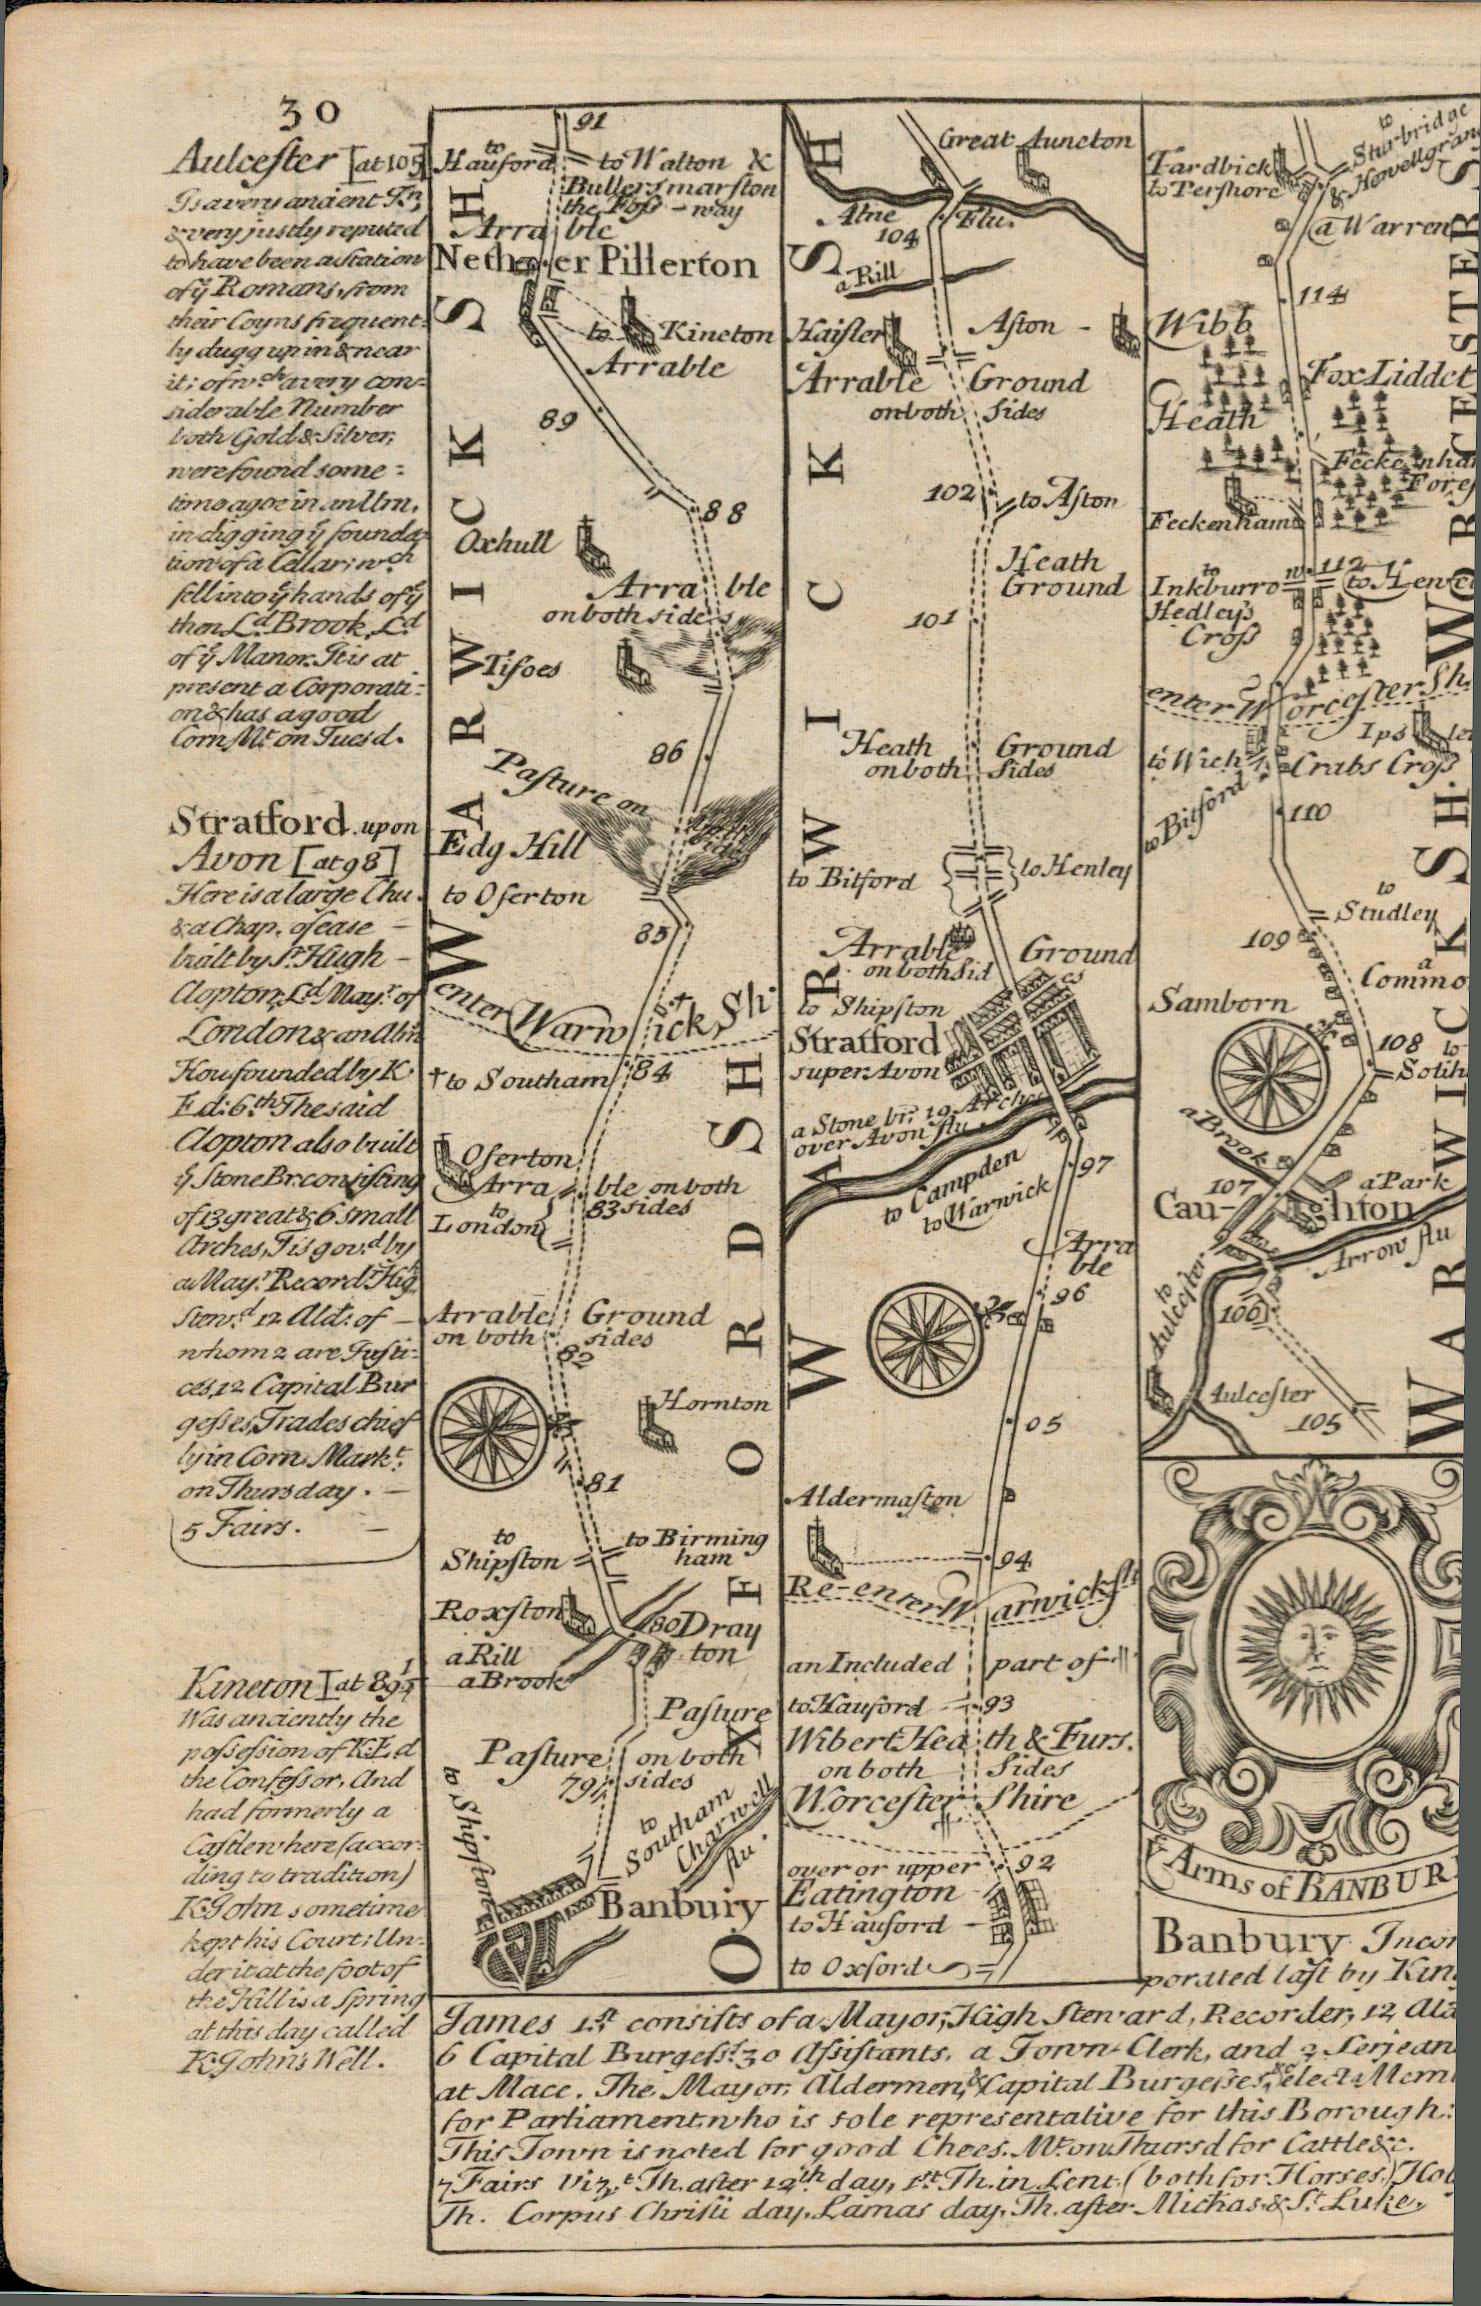 30
Aulcester [at 105]
Is a very ancient Tn,
& very justly reputed
to have been a station
of ye Romans, from
their Coyns frequent-
ly dugg up in & near
it: of wch a very con-
siderable Number
both Gold & Silver,
were found some-
time agoe in an Urn,
in digging ye founda-
tion of a Cellar: wch
fell into ye hands of ye
then Ld. Brook, Ld
of ye Manor. It is at
present a Corporati-
on & has a good
Corn Mt. on Tuesd.
Stratford upon
Avon [at 98]
Here is a large Chu.
& a Chap. of ease
built by Sr. Hugh
Clopton, Ld. Mayr. of
London & an Alm
Hou founded by K.
Ed: 6.th The said
Clopton also built
ye Stone Br: consisting
of 13 great & 6 small
Arches, Tis gov.d by
a Mayr. Recordr. Hig
Stewd. 12 Ald: of
whom 2 are Justi-
ces, 12 Capital Bur
gesses, Trades chief
ly in Corn. Markt.
on Thursday.
5 Fairs.
Kineton [at 89 1/4
Was anciently the
possession of K: E.d
the Confessor, And
had formerly a
Castle where (accor-
ding to tradition)
K. John sometime
kept his Court: Un-
der it at the foot of
the Hill is a Spring
at this day called
K: John's Well.
91
to Hauford
to Walton &
Bullersmarston
the Foss-way
Arrable
Nether Pillerton
to Kineton
Arrable
89
88
Oxhull
Arrable
on both sides
Tisoes
86
Pasture on both sides
Edg Hill
to Oserton
85
enter Warwick Sh:
84
to Southam
Oserton
Arrable on both
83 sides
to London
Arrable Ground
on both sides
82
Hornton
81
to Shipston
to Birmingham
Roxston
80
Drayton
a Rill
a Brook
Pasture
Pasture on both
79 sides
to Shipston
to Southam
Charwell flu.
Banbury
WARWICK SH
OXFORDSH
Great Auncton
Alne Flu.
104
a Rill
Haisler
Aston
Arrable Ground
on both sides
102
to Aston
Heath
Ground
101
Heath Ground
on both sides
to Bitford
to Henley
Arrable Ground
on both Sides
to Shipston
Stratford
super Avon
a Stone br: 19 Arches
over Avon flu.
97
to Campden
to Warwick
Arrable
96
95
Aldermaston
94
Re-enter Warwicksh
an Included part of
to Hauford
93
Wibert Heath & Furs.
on both Sides
Worcester Shire
92
over or upper
Eatington
to Hauford
to Oxford
WARWICKSH
Tardbick
to Pershore
to Sturbridge
& Howellgran
a Warren
114
Wibb
Heath
Fox Liddet
Feckenha
Fores
Feckenham
112
to Inkburro
to Henle
Hedley's
Cross
enter Worcester Sh.
Ips ley
to Wich
Crabs Cross
to Bitford
110
to
Studley
109
a
Commo
Samborn
108
to
Solih
a Brook
107
a Park
Caughton
Arrow flu
to Aulcester
106
Aulcester
105
WARWICKSH.
WORCESTERS
ye Arms of BANBUR
Banbury Incor
porated last by King
James 1st: consists of a Mayor, High Steward, Recorder, 12 Ald
6 Capital Burgess: 30 Assistants, a Town-Clerk, and 2 Serjean
at Mace. The Mayor, Aldermen, & Capital Burgesses, &c. elect a Mem
for Parliament, who is sole representative for this Borough:
This Town is noted for good Chees. Mt. on Thursd for Cattle &c.
7 Fairs vizt. Th. after 12th day, 1st. Th. in Lent (both for Horses) Hol
Th. Corpus Christi day, Lamas day, Th. after Michas. & St. Luke.